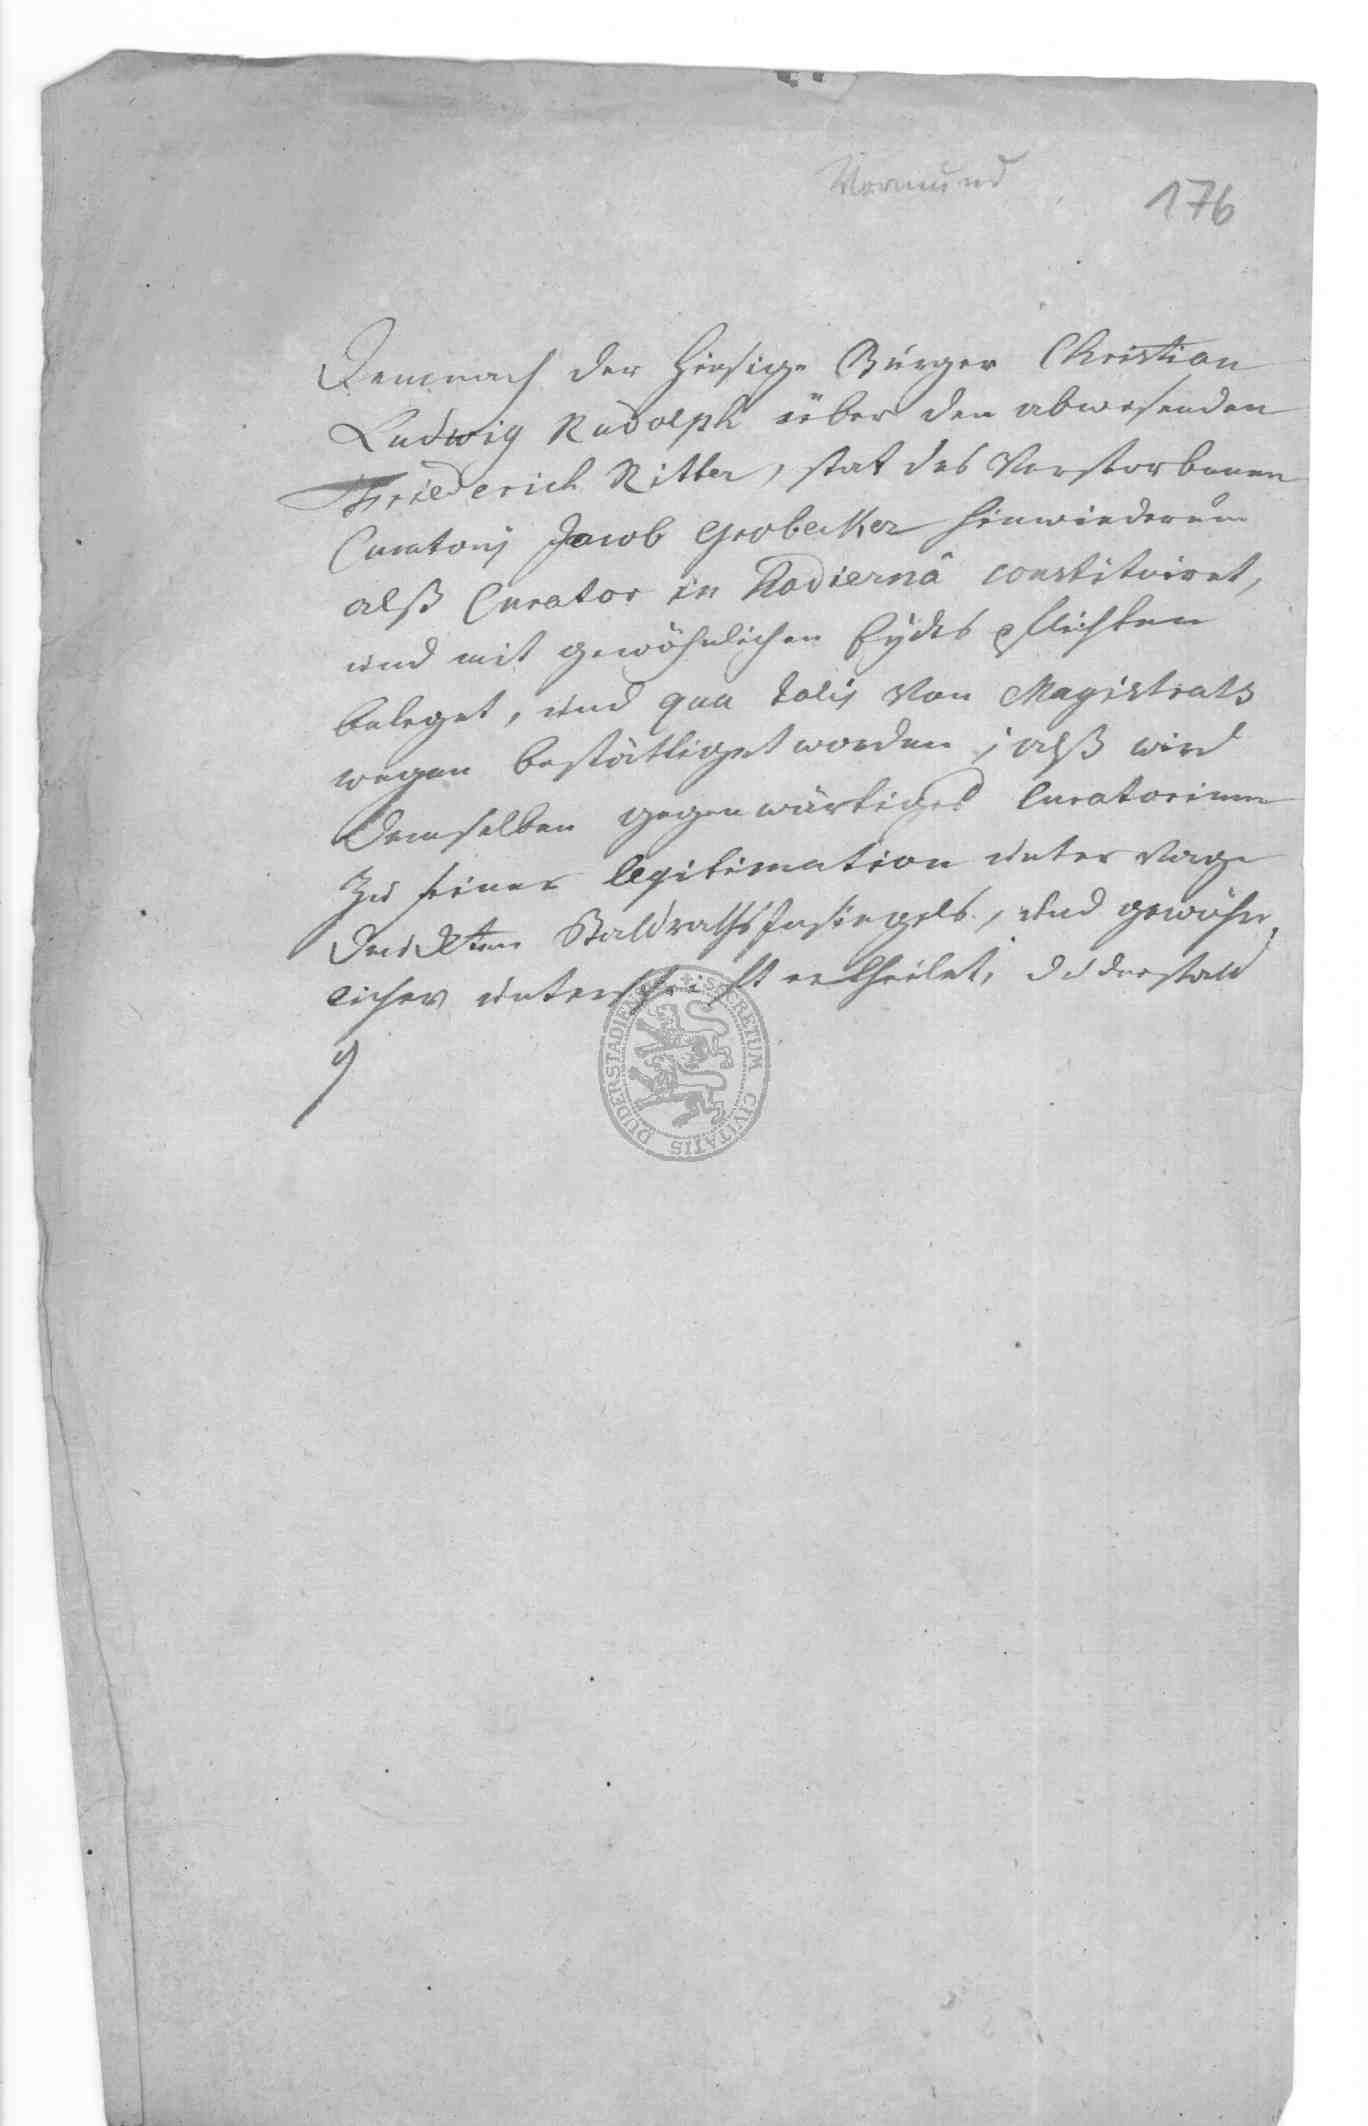 Vormund
176
Demnach der hiesige Bürger Christian
Ludwig Rudolph über den abwesenden
Friederich Ritter, stat des Verstorbenen
Curatoris Jacob Grobecker hinwiederum
alß Curator in Hodiernâ constituiret,
und mit gewöhnlichen Eydes pflichten
beleget, und qua talis von Magistrats
wegen bestättiget worden; alß wird
demselben gegenwärtiges Curatorium
zu seiner legitimation unter
Stadraths Insiegels, und gewöhn¬
licher unterschrifft ertheilet, duderstadt
SECRETUM CIVITATIS DUDERSTADIENSIS